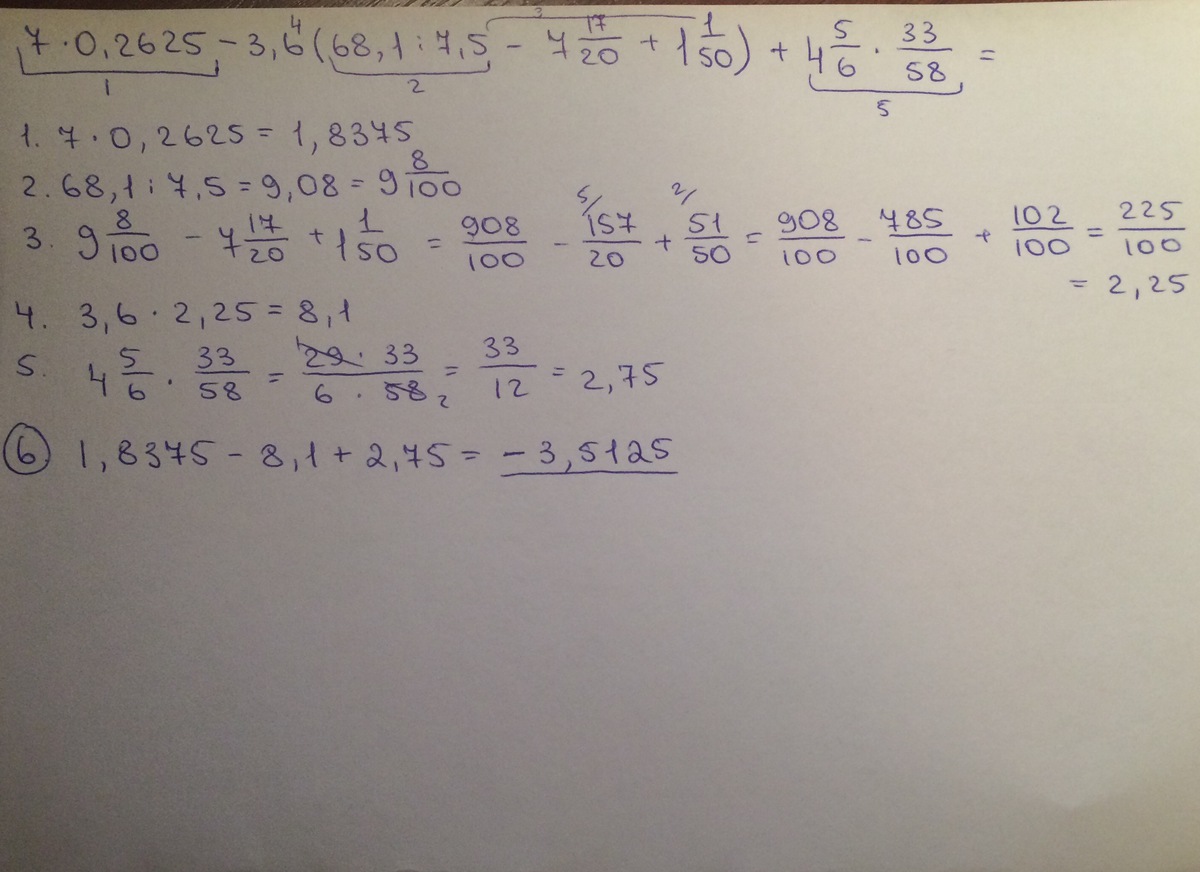 7 · 0,2625 − 3,6 (68,1 : 7,5 − 7 17/20 + 1 1/50) + 4 5/6 · 33/58 =
1 2 3 4 5
1. 7 · 0,2625 = 1,8375
2. 68,1 : 7,5 = 9,08 = 9 8/100
3. 9 8/100 − 7 17/20 + 1 1/50 = 908/100 − 5/ 157/20 + 2/ 51/50 = 908/100 − 785/100 + 102/100 = 225/100
= 2,25
4. 3,6 · 2,25 = 8,1
5. 4 5/6 · 33/58 = 1 29 · 33/6 · 58 2 = 33/12 = 2,75
6 1,8375 − 8,1 + 2,75 = − 3,5125